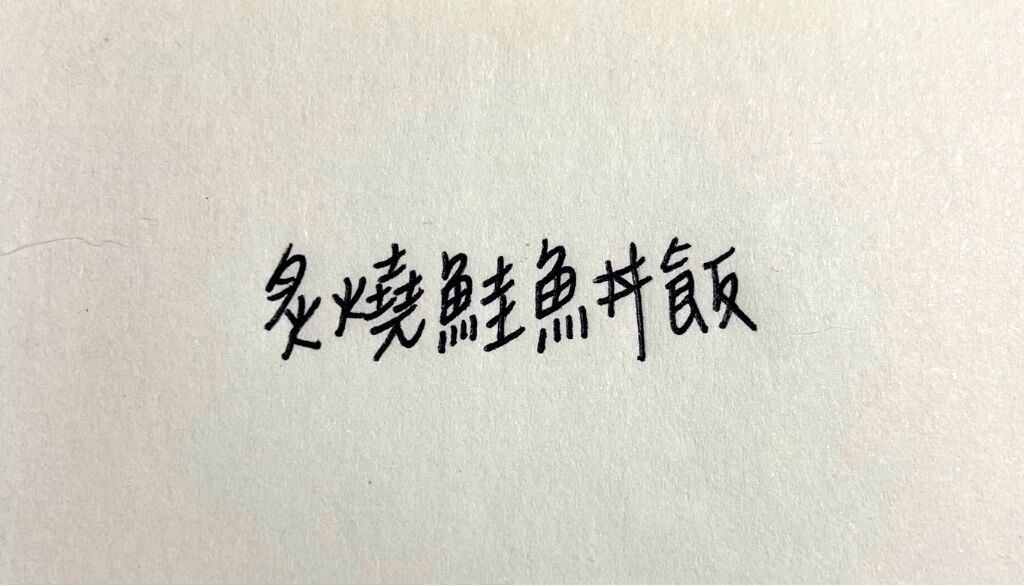 炙燒鮭魚丼飯